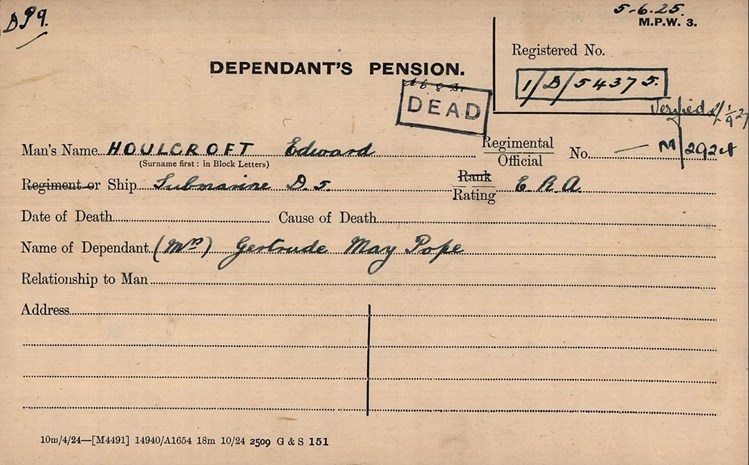 DP9.
5-6.25.
M.P.W. 3.
Registered No.
1/D/54375.
DEPENDANT'S PENSION.
DEAD
Verified 2/1/9 27
Man's Name HOULCROFT Edward Regimental Official No. — M/2924
(Surname first: in Block Letters)
Regiment or Ship Submarine D.5. Rank Rating E.R.A.
Date of Death Cause of Death
Name of Dependant (Mrs) Gertrude May Pope
Relationship to Man
Address
10m/4/24—[M4491] 14940/A1654 18m 10/24 2509 G & S 151